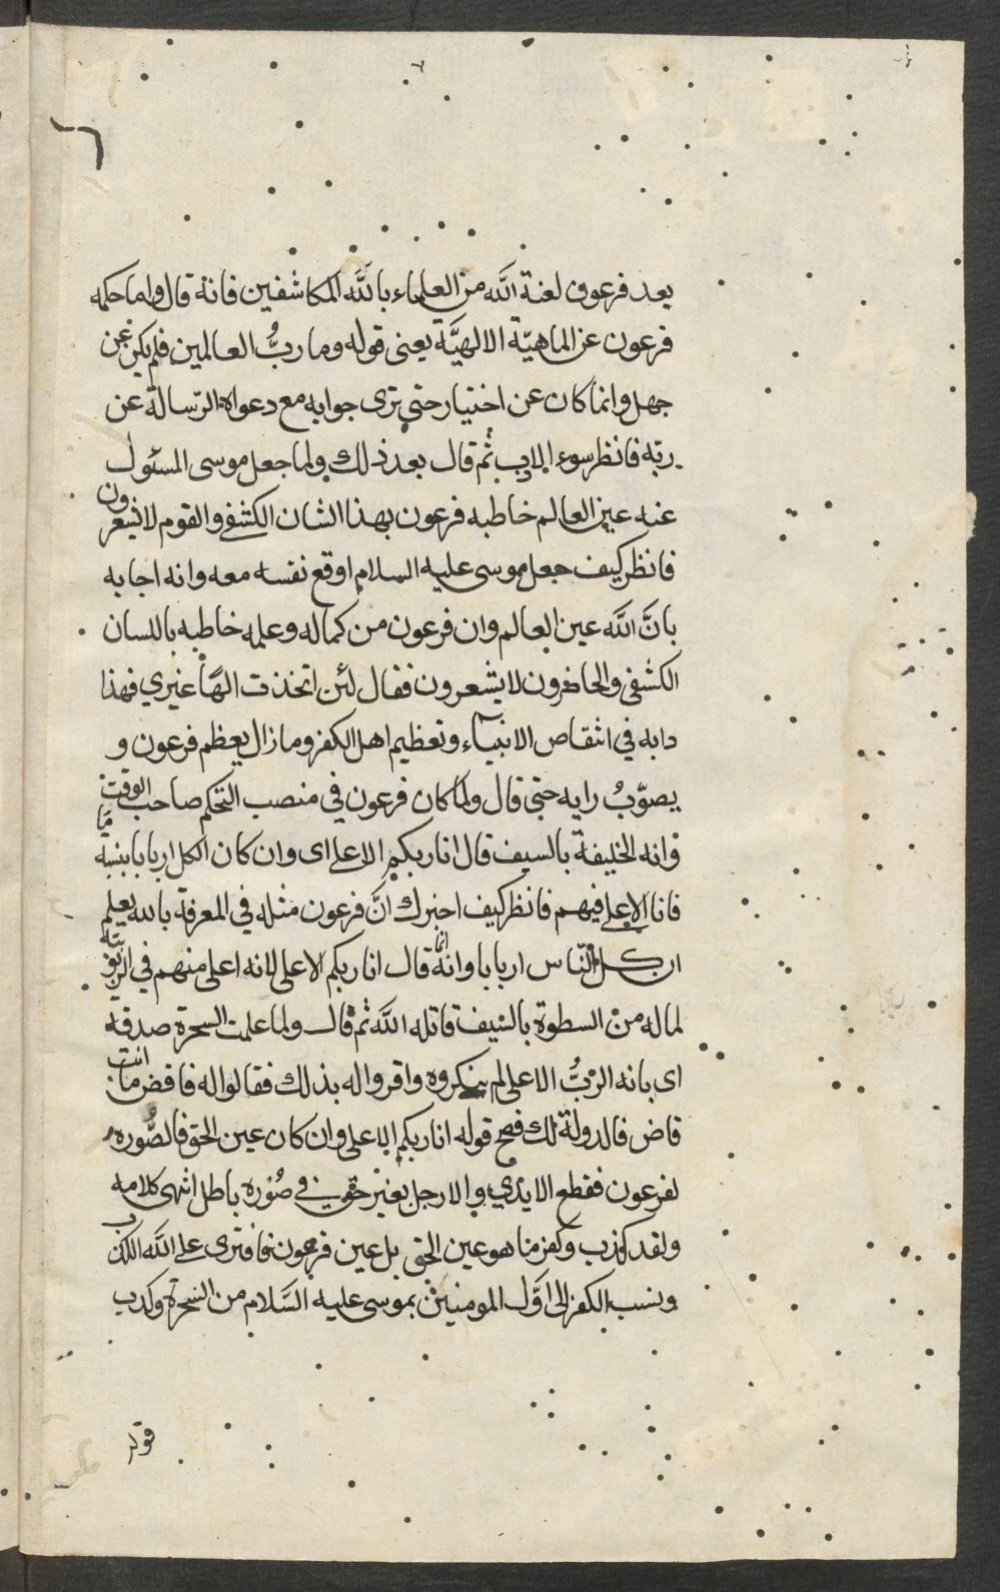 ٦
يعد فرعون لعنة الله من العلماء بالله المكاشفين فانة قال واما حكمه
فرعون عن الماهيّة الالهيَّة يعنى قوله وما ربُّ العالمين فلم يكن عن
جهل وانما كان عن اختيار حتى يرى جوابه مع دعواه الرّسالة عن
ربّه فانظر سوء الادب ثم قال بعد ذلك ولما جعل موسى المسئول
عنه عين العالم خاطبه فرعون بهذا الشان الكشفي والقوم لا يشعرون
فانظر كيف جعل موسى عليه السلام اوقع نفسه معه وانه اجابه
بانَّ الله عين العالم وان فرعون من كماله وعلمه خاطبه باللسان
الكشفي والحاضرون لا يشعرون فقال لئن اتخذت الهًا غيري فهذا
دابه في انتقاص الانبياء وتعظيم اهل الكفر وما زال يعظم فرعون و
يصوّبُ رايه حتى قال ولما كان فرعون في منصب التحكم صاحب الوقت
وانه الخليفة بالسيف قال انا ربكم الاعلى اى وان كان الكل اربابا بنسبة مّا
فانا الاعلى فيهم فانظر كيف اخبرك انَّ فرعون مثله في المعرفة بالله يعلم
ان كل النّاس اربابا وانه انما قال انا ربكم الاعلى لانه اعلى منهم في الربوبيّته
لما له من السطوة بالسّيف قاتله الله ثم قال ولما علمت السحرة صدقه
اى بانه الربُّ الاعلى لم ينكروه واقروا له بذلك فقالوا له فاقض ما انت
قاض فالدولة لك فصح قوله انا ربكم الاعلى وان كان عين الحق فالصُّوره
لفرعون فقطع الايدي والارجل بغير حق في صُوره باطل انتهى كلامه
ولقد كذب وكفر ما هو عين الحق بل عين فرعون فافترى على الله الكذب
ونسب الكفر الى اوَّل المومنين بموسى عليه السَّلام من السّحرة وكذب
قوله